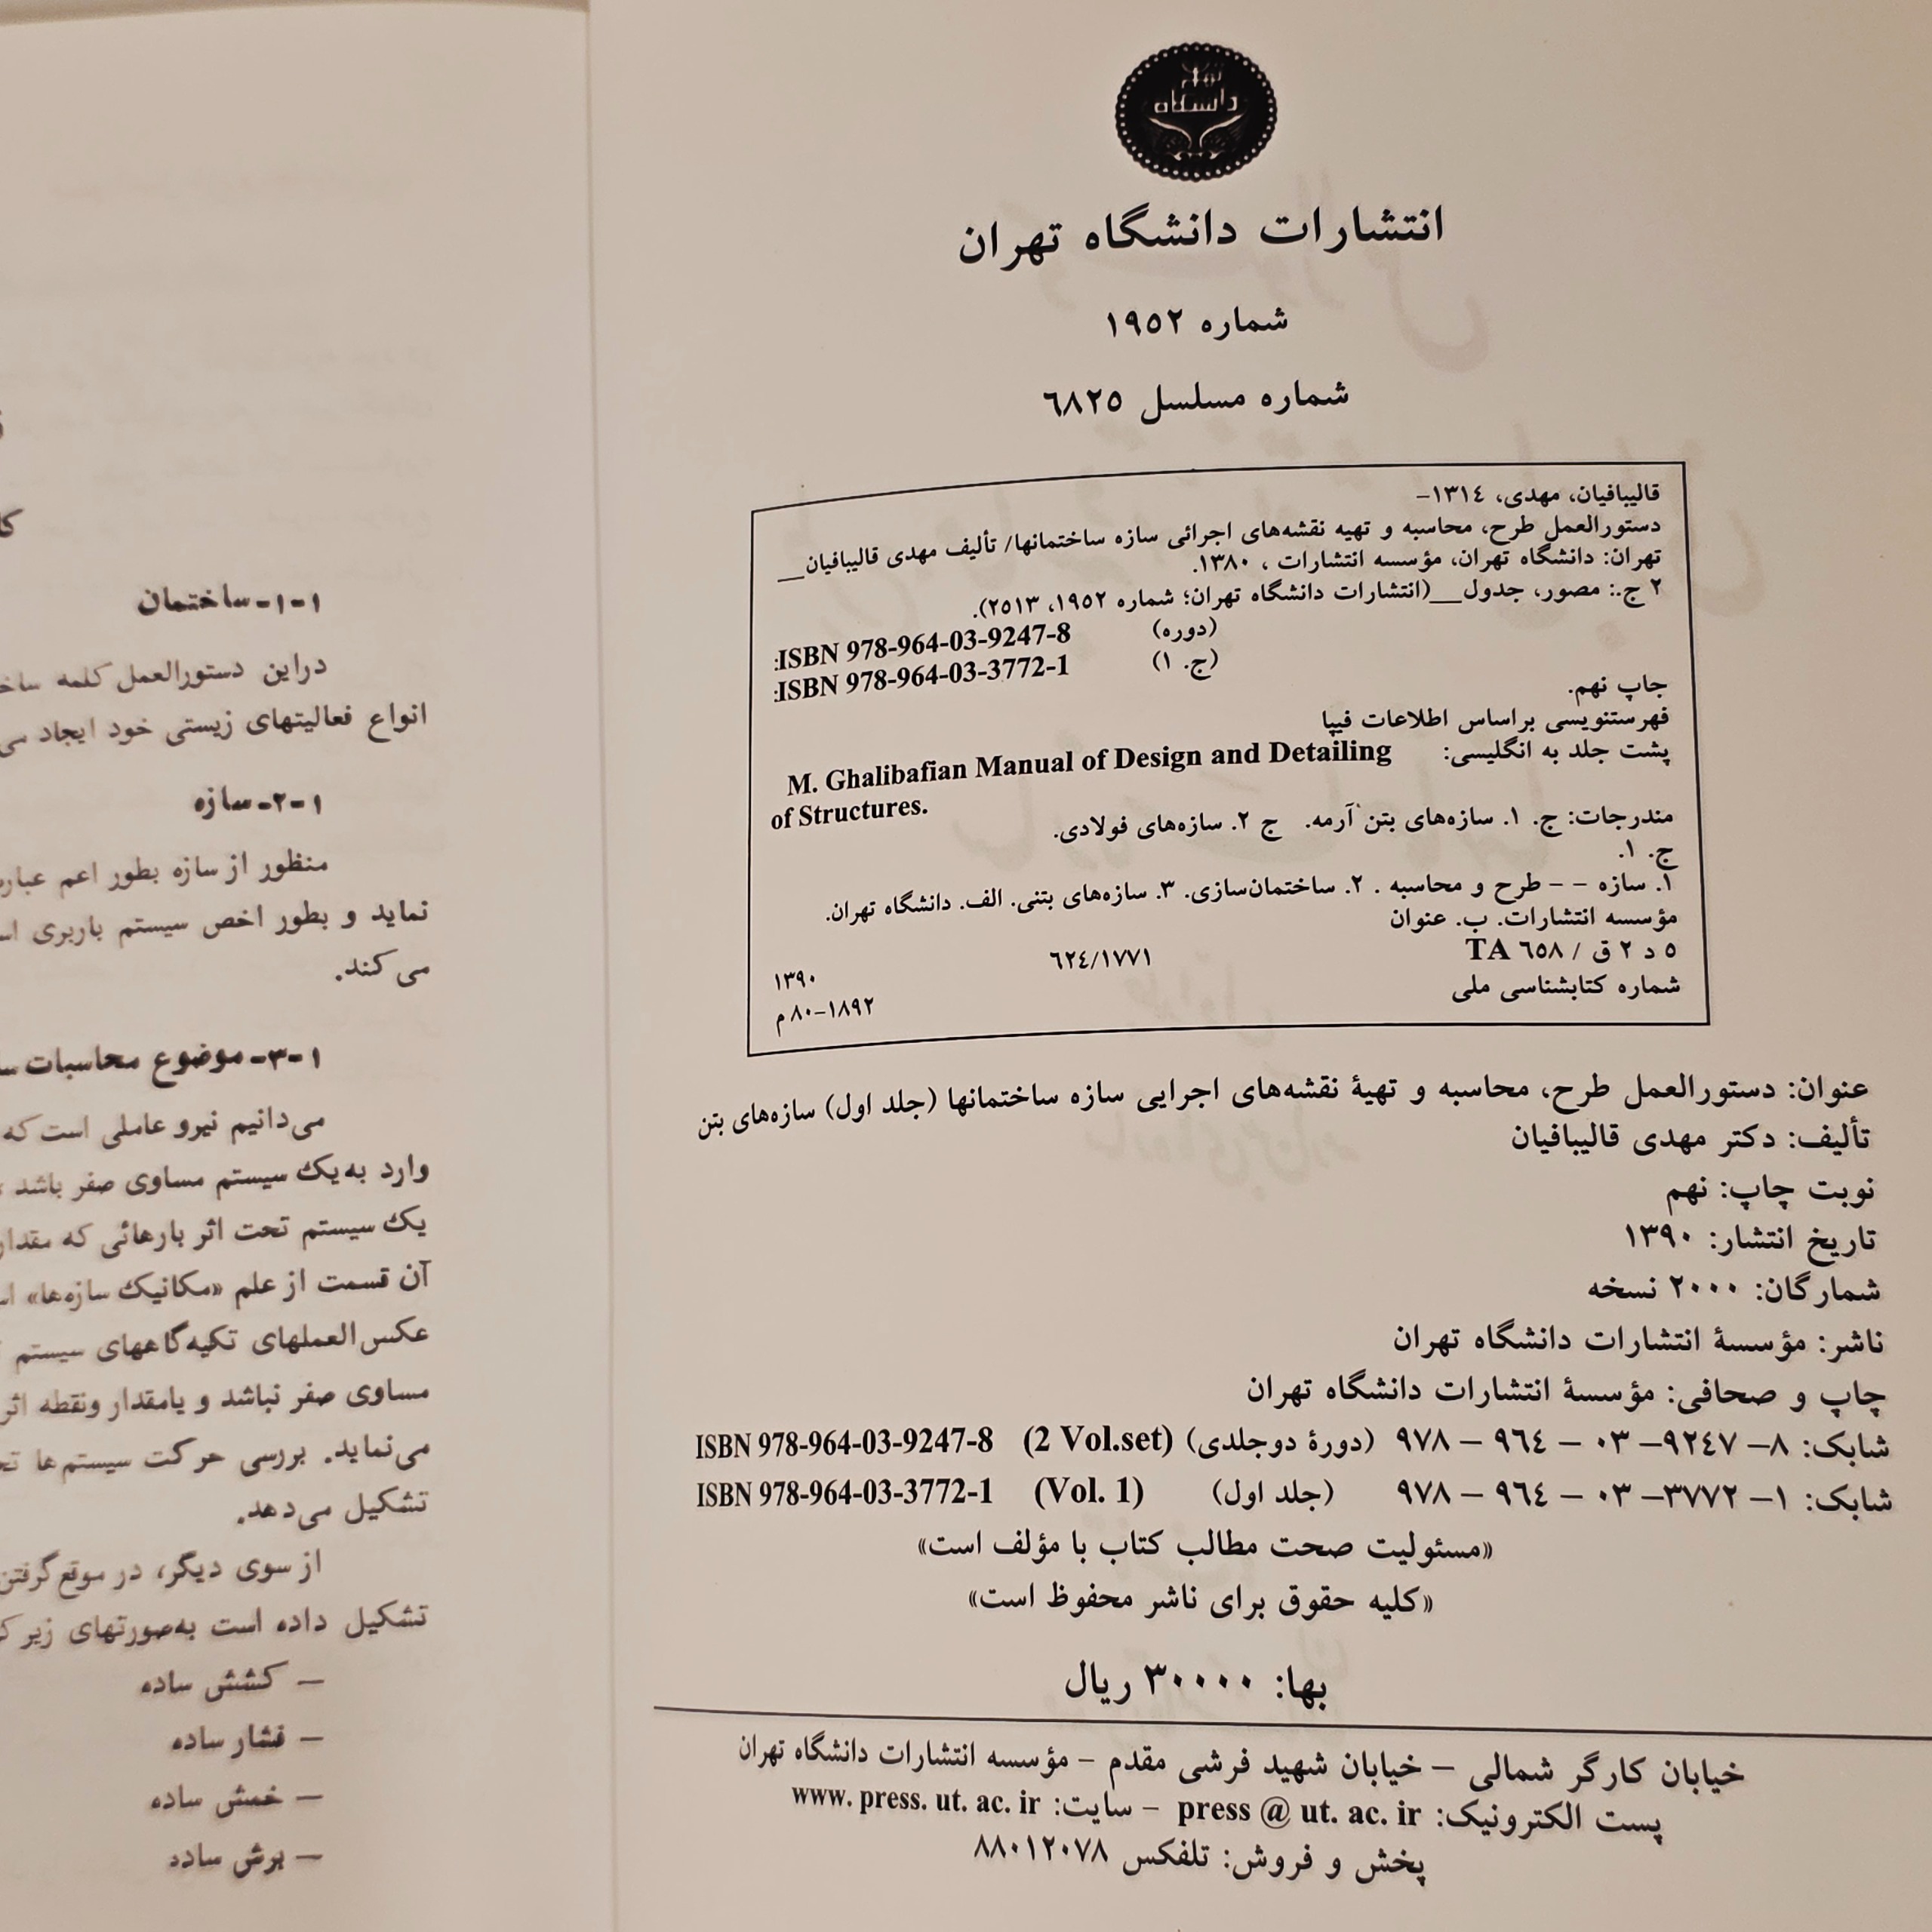 دانشگاه
انتشارات دانشگاه تهران
شماره ۱۹۵۲
شماره مسلسل ٦۸۲۵
قالیبافیان، مهدی، ۱۳۱٤–
دستورالعمل طرح، محاسبه و تهیه نقشه‌های اجرائی سازه ساختمانها/ تألیف مهدی قالیبافیان__
تهران: دانشگاه تهران، مؤسسه انتشارات ، ۱۳۸۰.
۲ ج.: مصور، جدول__(انتشارات دانشگاه تهران؛ شماره ۱۹۵۲، ۲۵۱۳).
(دوره) ISBN 978-964-03-9247-8:
(ج. ۱) ISBN 978-964-03-3772-1:
چاپ نهم.
فهرستنویسی براساس اطلاعات فیپا
پشت جلد به انگلیسی: M. Ghalibafian Manual of Design and Detailing
of Structures.
مندرجات: ج. ۱. سازه‌های بتن آرمه. ج ۲. سازه‌های فولادی.
ج. ۱.
۱. سازه – – طرح و محاسبه . ۲. ساختمان‌سازی. ۳. سازه‌های بتنی. الف. دانشگاه تهران.
مؤسسه انتشارات. ب. عنوان
۵ د ۲ ق / ٦۵۸ TA ٦۲٤/۱۷۷۱ ۱۳۹۰
شماره کتابشناسی ملی ۱۸۹۲–۸۰ م
عنوان: دستورالعمل طرح، محاسبه و تهیۀ نقشه‌های اجرایی سازه ساختمانها (جلد اول) سازه‌های بتن
تألیف: دکتر مهدی قالیبافیان
نوبت چاپ: نهم
تاریخ انتشار: ۱۳۹۰
شمارگان: ۲۰۰۰ نسخه
ناشر: مؤسسۀ انتشارات دانشگاه تهران
چاپ و صحافی: مؤسسۀ انتشارات دانشگاه تهران
شابک: ۸– ۹۲٤۷– ۰۳ – ۹٦٤ – ۹۷۸ (دورۀ دوجلدی) (2 Vol.set) ISBN 978-964-03-9247-8
شابک: ۱– ۳۷۷۲– ۰۳ – ۹٦٤ – ۹۷۸ (جلد اول) (Vol. 1) ISBN 978-964-03-3772-1
«مسئولیت صحت مطالب کتاب با مؤلف است»
«کلیه حقوق برای ناشر محفوظ است»
بها: ۳۰۰۰۰ ریال
خیابان کارگر شمالی – خیابان شهید فرشی مقدم – مؤسسه انتشارات دانشگاه تهران
پست الکترونیک: press @ ut. ac. ir – سایت: www. press. ut. ac. ir
پخش و فروش: تلفکس ۸۸۰۱۲۰۷۸
۱-۱-ساختمان
دراین دستورالعمل کلمه
انواع فعالیتهای زیستی خود ایجاد
۱-۲-سازه
منظور از سازه بطور اعم
نماید و بطور اخص سیستم باربری
می کند.
۱-۳-موضوع محاسبات
می‌دانیم نیرو عاملی است که
وارد به یک سیستم مساوی صفر باشد
یک سیستم تحت اثر بارهائی که
آن قسمت از علم «مکانیک سازه‌ها»
عکس‌العملهای تکیه‌گاههای سیستم
مساوی صفر نباشد و یامقدار ونقطه اثر
می‌نماید. بررسی حرکت سیستم‌ها
تشکیل می‌دهد.
از سوی دیگر، در موقع گرفتن
تشکیل داده است به‌صورتهای زیر
– کشش ساده
– فشار ساده
– خمش ساده
– برش ساده